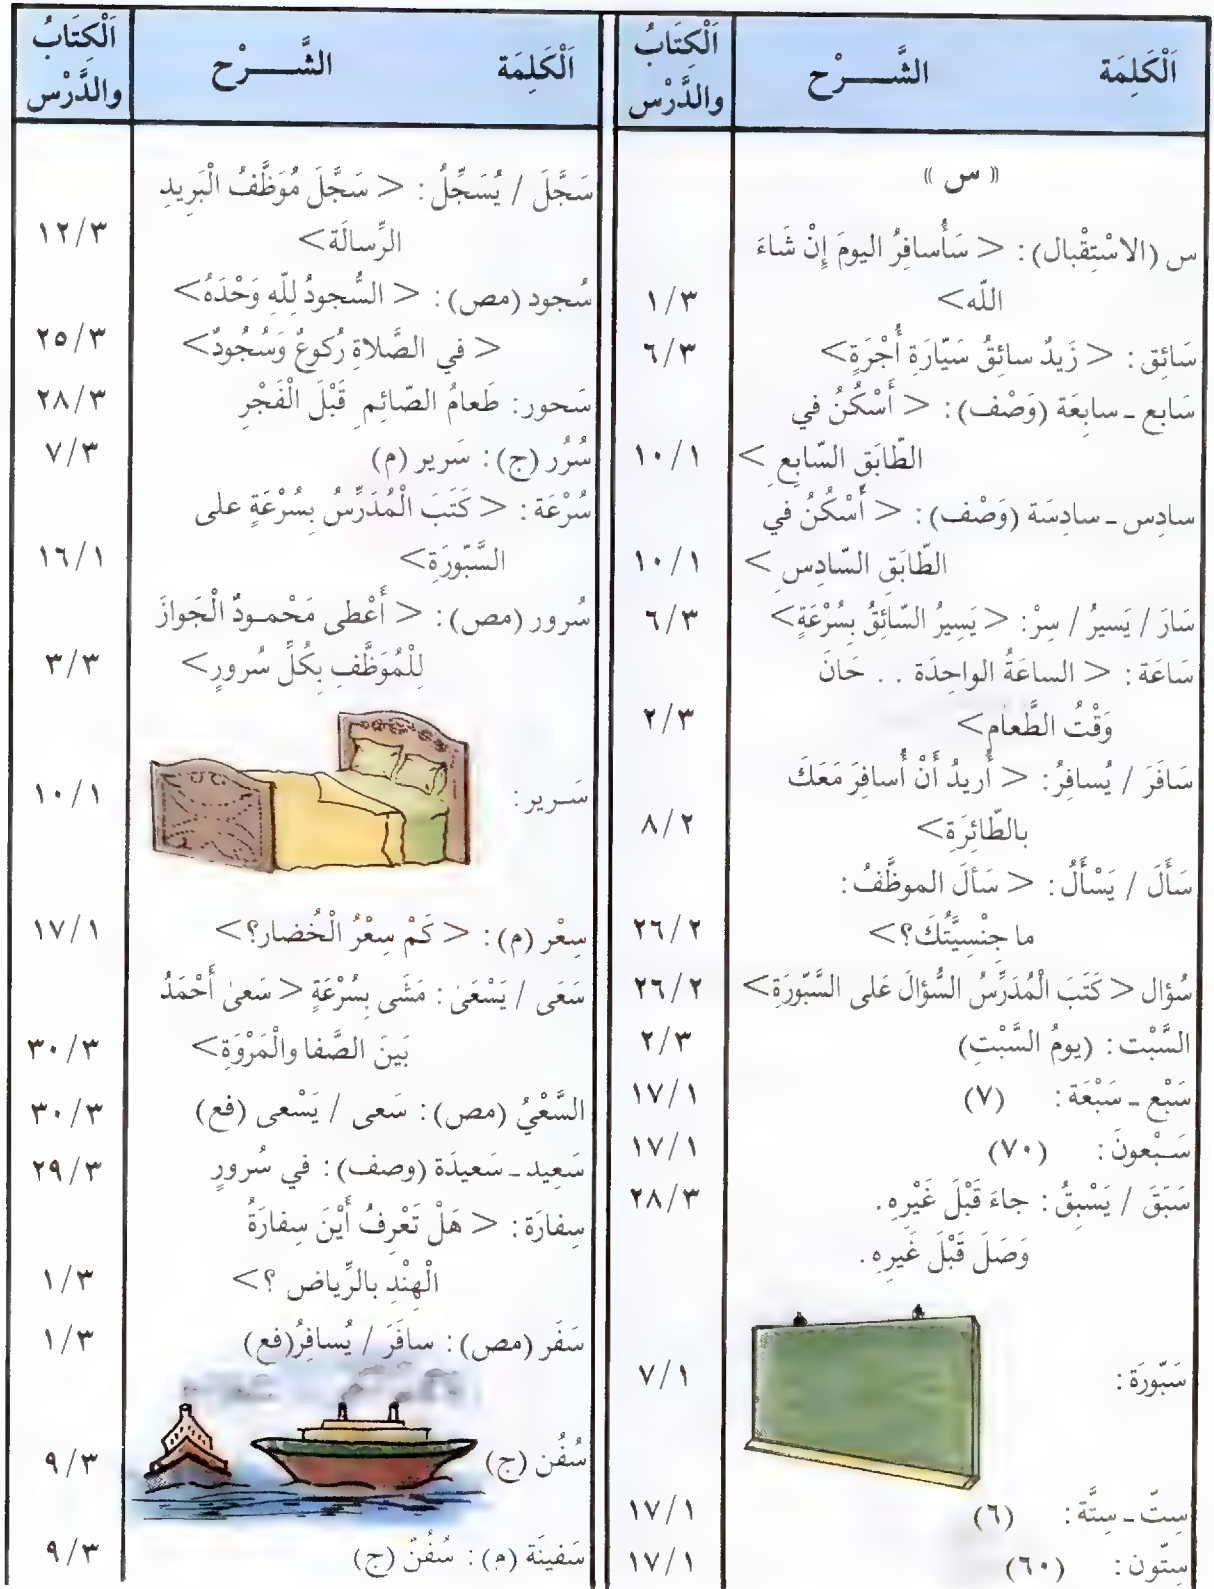 اَلْكَلِمَة الشَّـــرْح اَلْكِتَابُ والدَّرْس
« س »
س (الاسْتِقْبال): < سَأُسافِرُ اليومَ إِنْ شَاءَ
اللّه> ١/٣
سَائِق: < زَيدٌ سائِقُ سَيّارَةِ أُجْرَةٍ> ٦/٣
سَابع ـ سابِعَة (وَصْف): < أَسْكُنُ في
الطّابَقِ السّابِعِ > ١٠/١
سادِس ـ سادِسَة (وَصْف): < أَسْكُنُ في
الطّابَقِ السّادِسِ > ١٠/١
سَارَ / يَسيرُ / سِرْ: < يَسِيرُ السّائِقُ بِسُرْعَةٍ> ٦/٣
سَاعَة: < الساعَةُ الواحِدَة . . حَانَ
وَقْتُ الطَّعامِ> ٢/٣
سَافَرَ / يُسافِرُ: < أُريدُ أَنْ أُسافِرَ مَعَكَ
بالطّائِرَةِ> ٨/٢
سَأَلَ / يَسْأَلُ: < سَأَلَ الموظَّفُ:
ما جِنْسِيَّتُكَ؟> ٢٦/٢
سُؤال < كَتَبَ الْمُدَرِّسُ السُّؤالَ عَلى السَّبّورَةِ> ٢٦/٢
السَّبْت: (يومُ السَّبْتِ) ٢/٣
سَبْع ـ سَبْعَة: (٧) ١٧/١
سَـبْعونَ: (٧٠) ١٧/١
سَبَقَ / يَسْبِقُ: جاءَ قَبْلَ غَيْرِهِ. ٢٨/٣
وَصَلَ قَبْلَ غَيرِهِ.
سَبّورَة: ٧/١
سِتّ ـ سِتَّة: (٦) ١٧/١
سِتّون: (٦٠) ١٧/١
اَلْكَلِمَة الشَّـــرْح اَلْكِتَابُ والدَّرْس
سَجَّلَ / يُسَجِّلُ: < سَجَّلَ مُوَظَّفُ الْبَريدِ
الرِّسالَة> ١٢/٣
سُجود (مص): < السُّجودُ لِلّهِ وَحْدَهُ>
< في الصَّلاةِ رُكوعٌ وَسُجُودٌ> ٢٥/٣
سَحور: طَعامُ الصّائِم قَبْلَ الْفَجْرِ ٢٨/٣
سُرُر (ج): سَرير (م) ٧/٣
سُرْعَة: < كَتَبَ الْمُدَرِّسُ بِسُرْعَةٍ على
السَّبّورَةِ> ١٦/١
سُرور (مص): < أَعْطى مَحْمـودٌ الْجَوازَ
لِلْمُوَظَّفِ بِكُلِّ سُرورٍ> ٣/٣
سَـرير: ١٠/١
سِعْر (م): < كَمْ سِعْرُ الْخُضار؟> ١٧/١
سَعَى / يَسْعَىٰ: مَشَى بِسُرْعَةٍ < سَعىٰ أَحْمَدُ
بَينَ الصَّفا والْمَرْوَةِ> ٣٠/٣
السَّعْيُ (مص): سَعى / يَسْعى (فع) ٣٠/٣
سَعِيد ـ سَعيدَة (وصف): في سُرورٍ ٢٩/٣
سِفارَة: < هَلْ تَعْرِفُ أَيْنَ سِفارَةُ
الْهِنْدِ بالرِّياض ؟> ١/٣
سَفَر (مص): سافَرَ / يُسافِرُ(فع) ١/٣
سُفُن (ج) ٩/٣
سَفينَة (م): سُفُنٌ (ج) ٩/٣